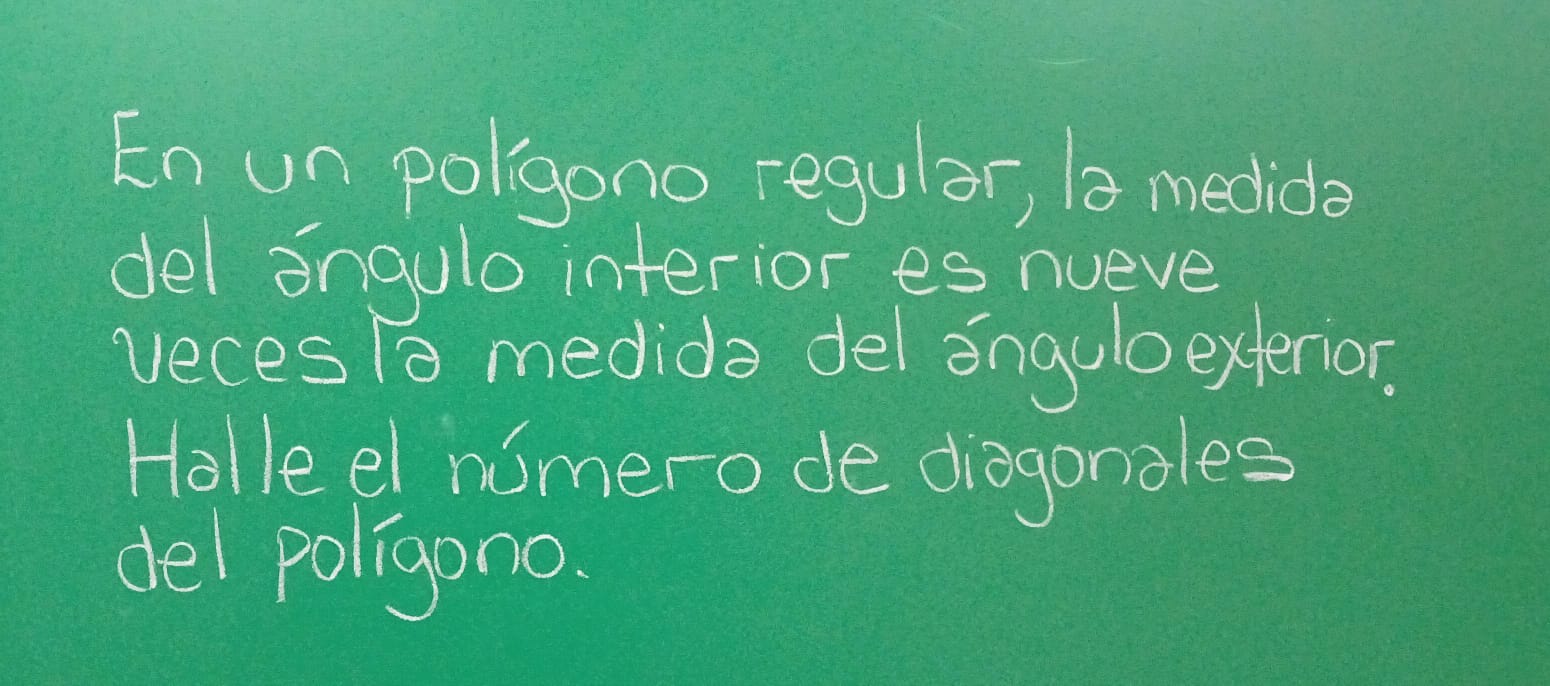 En un polígono regular, la medida
del ángulo interior es nueve
veces la medida del ángulo exterior.
Halle el número de diagonales
del polígono.